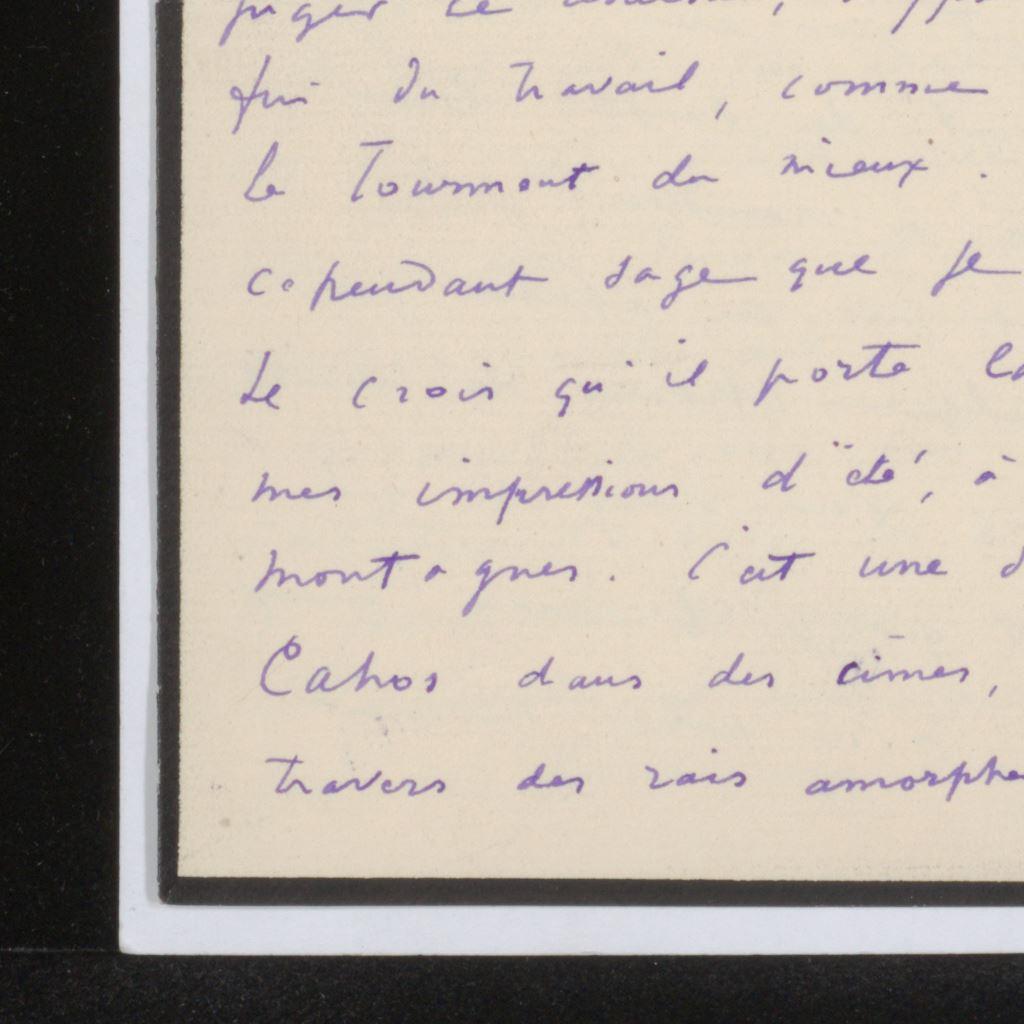 juger ce
fin du travail, comme
le Tourment du mieux.
cependant sage que je
Je crois qu'il porte
mes impressions d'été, à
montagnes. C'est une
Cahos dans des cimes,
travers des rais amorphe